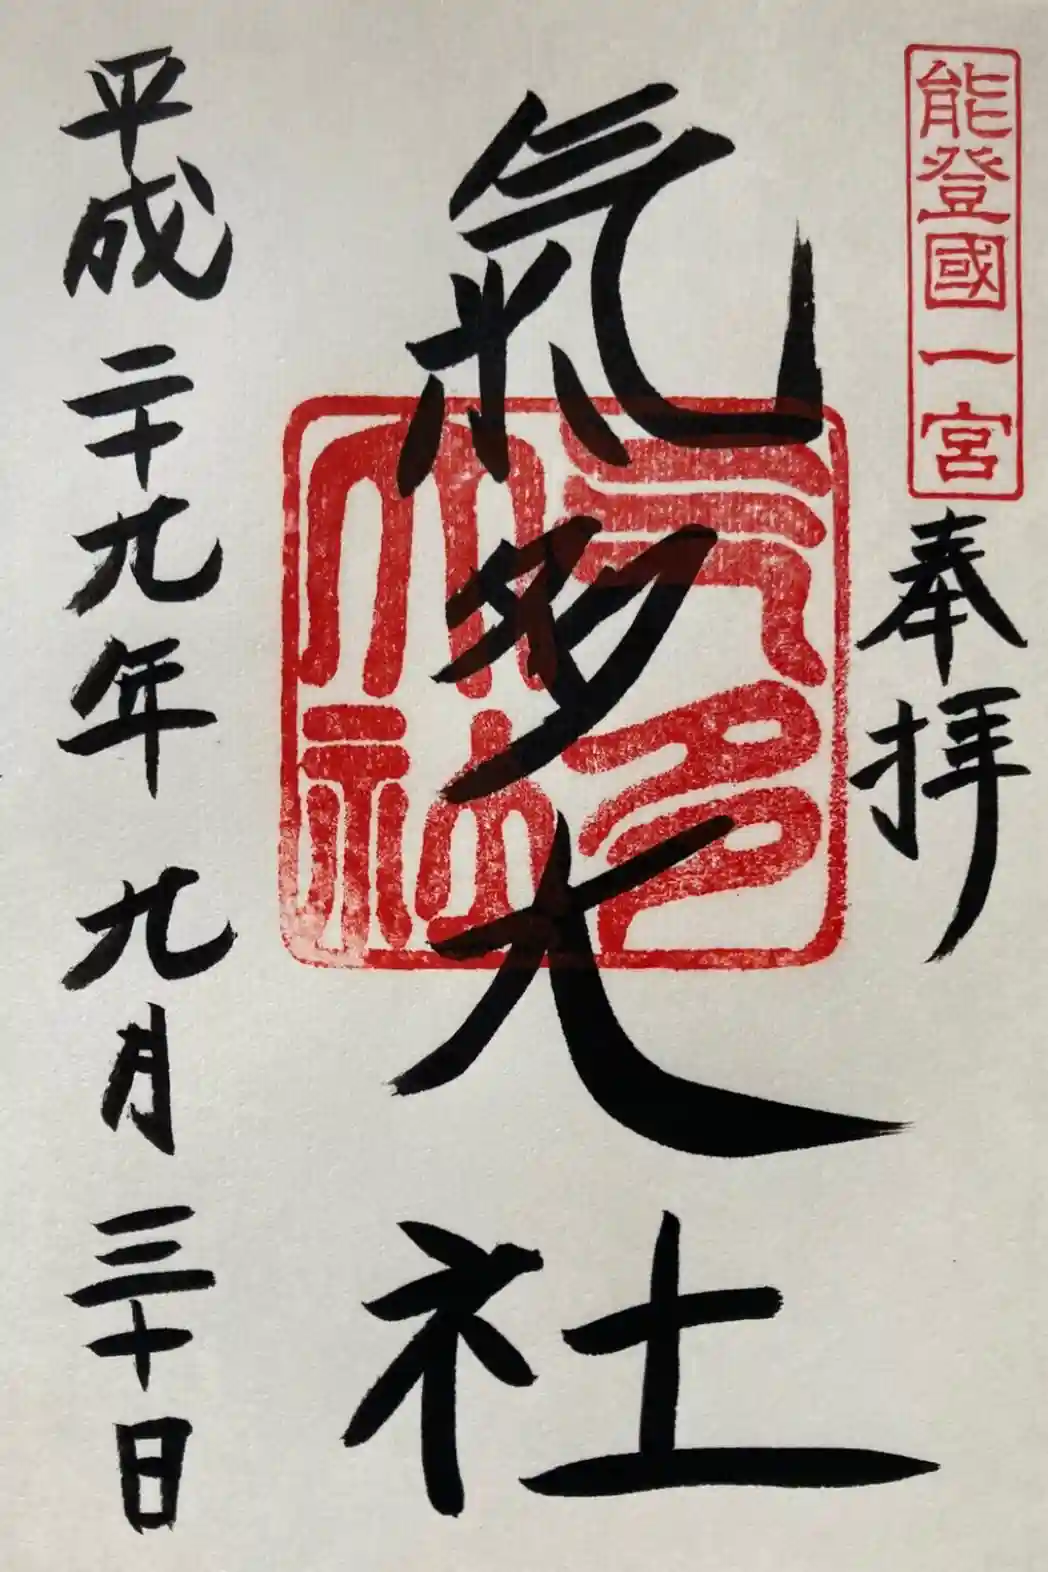 能登國一宮
奉拝
氣多大社
気多大社
平成二十九年九月三十日